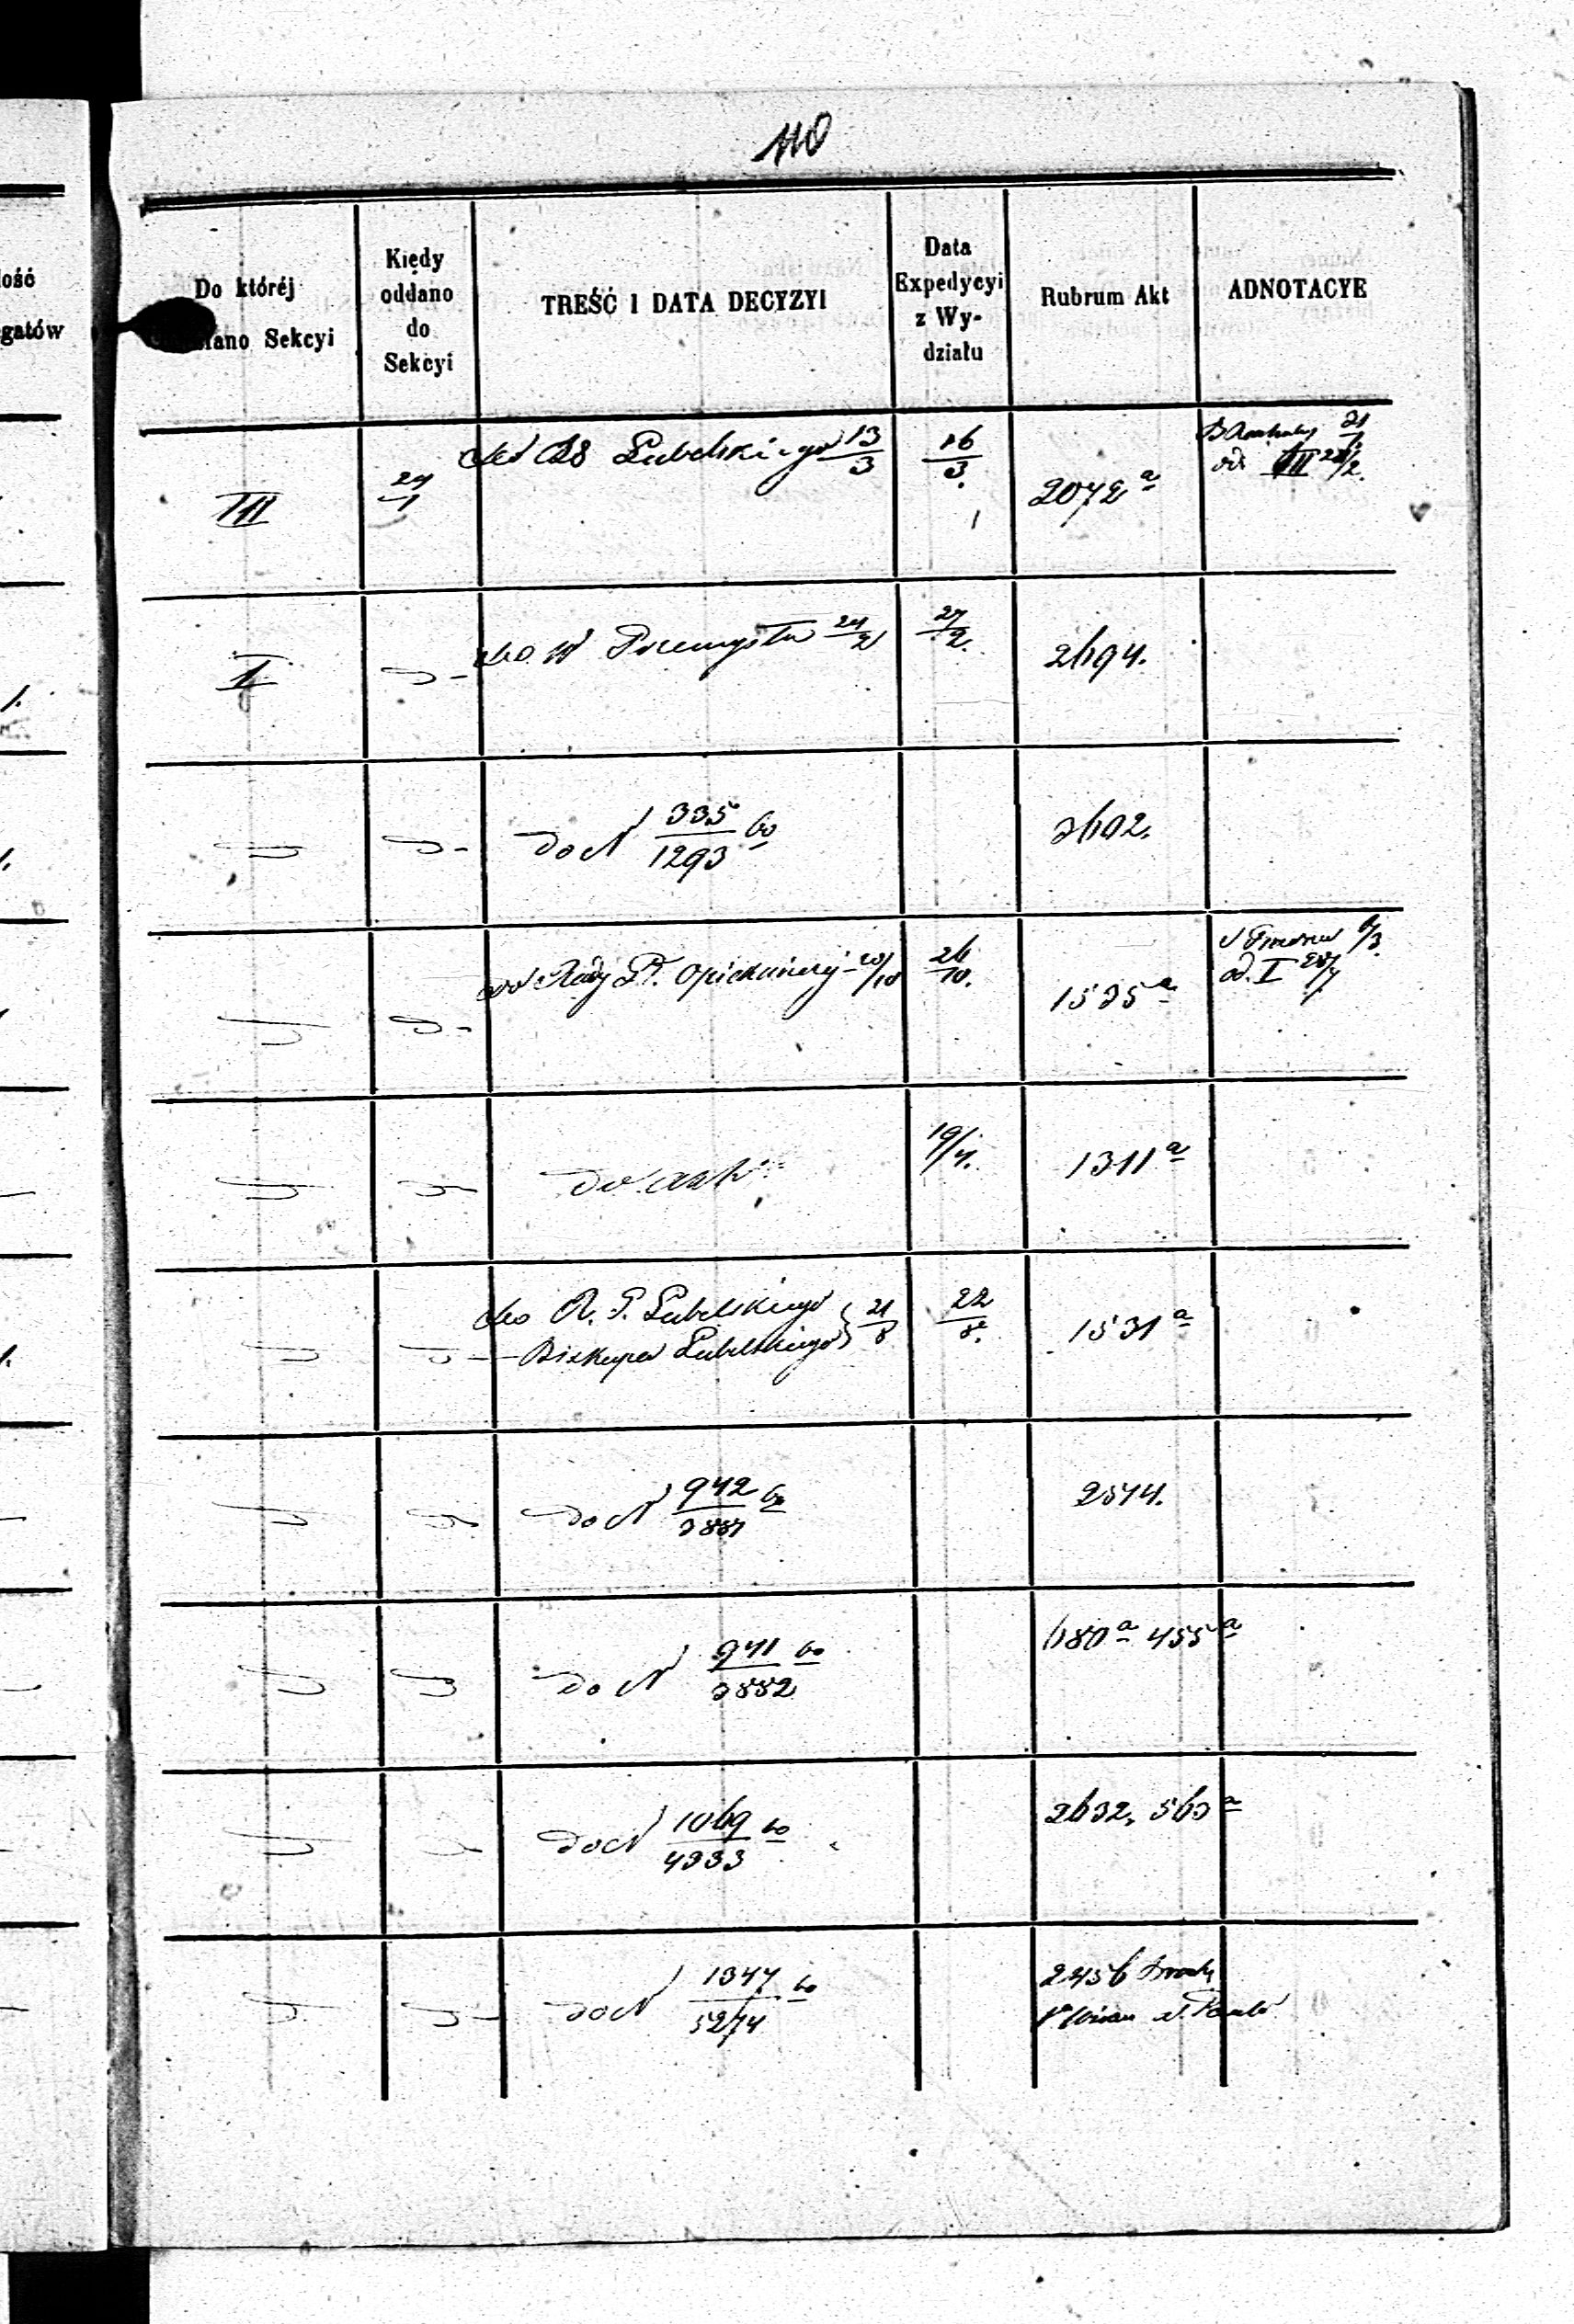 110
ość
gatów
Do któréj
łano Sekcyi
Kiedy
oddano
do
Sekcyi
TREŚĆ I DATA DECYZYI
Data
Expedycyi
z Wy-
działu
Rubrum Akt
ADNOTACYE
III
24/1
Lubelskiego 13/3
16/3.
2072 a
21/1.
od III /2.
I
do W Przemysłu 24/2
27/2.
2694.
do N 335/1293 60
3602.
do Rady Opiekuńczej 20/10
26/10.
1535 a
6/3.
od. I
do akt
19/4.
1311 a
do R. G. Lubelskiego
Biskupa Lubelskiego } 21/8
22/8.
1531 a
do N 942/3887 60
2574.
do N 941/3882 60
680 a 455 a
do N 1069/4333 60
2632, 563 a
do N 1347/5274 60
2456